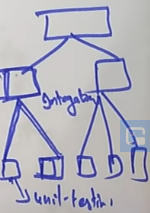 Integation
unit-testin,